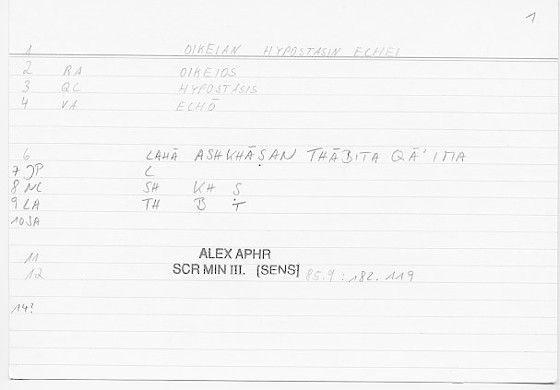 1
1 OIKEIAN HYPOSTASIN ECHEI
2 RA OIKEIOS
3 QC HYPOSTASIS
4 VA ECHŌ
6 LAHĀ ASHKHĀSAN THĀBITA QĀ'IMA
7 JP L
8 NC SH KH S
9 LA TH B T
10 SA
11 ALEX APHR
12 SCR MIN III. [SENS] 85.9 : 182.119
14?